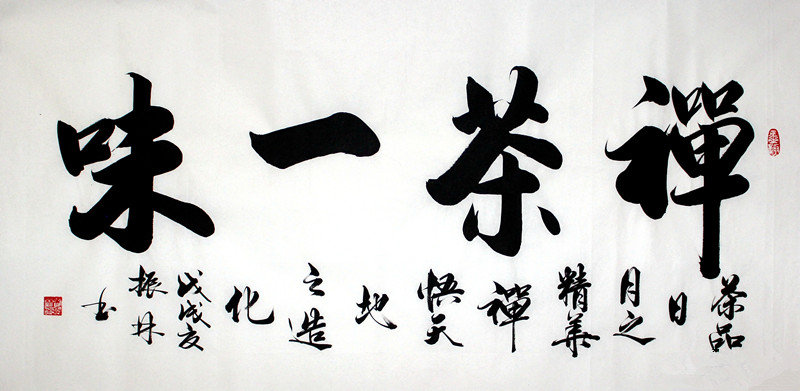 禪茶一味
茶品
日
月之
精華
禪
悟天
地
之造
化
戊戌夏
振林
书